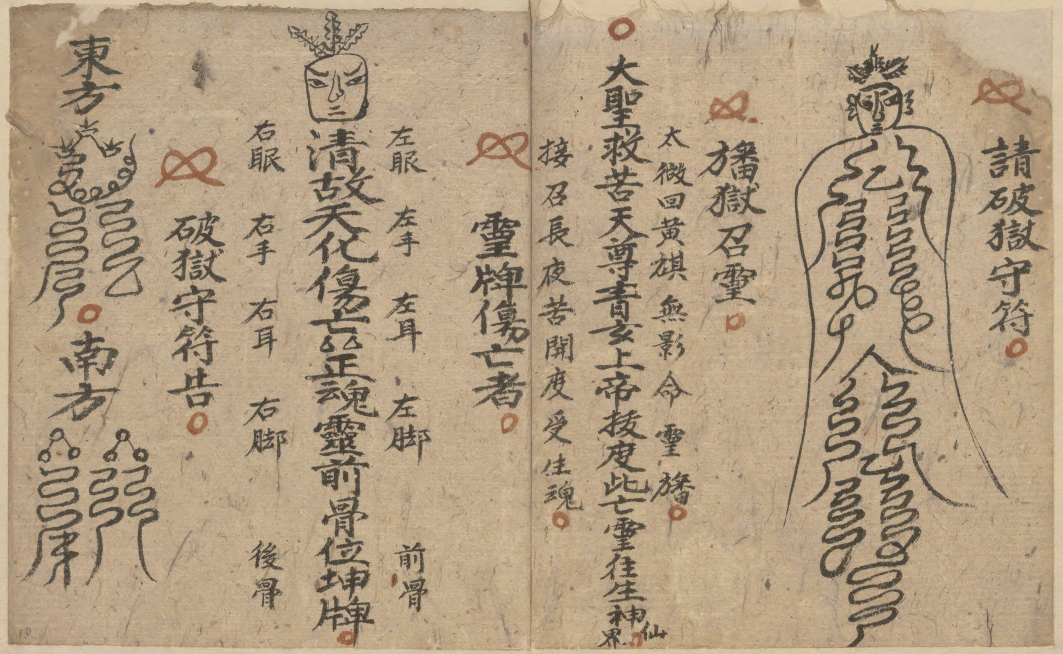 請破獄守符
旛獄召靈
太微回黃旗無影命靈旛
大聖救苦天尊青玄上帝拔度此亡靈往生神仙界
接召長夜苦開度受生魂
靈牌傷亡者
左眼 左手 左耳 左脚 前骨
清故天化傷亡 正魂靈前骨位坤牌
右眼 右手 右耳 右脚 後骨
破獄守符告
東方
南方